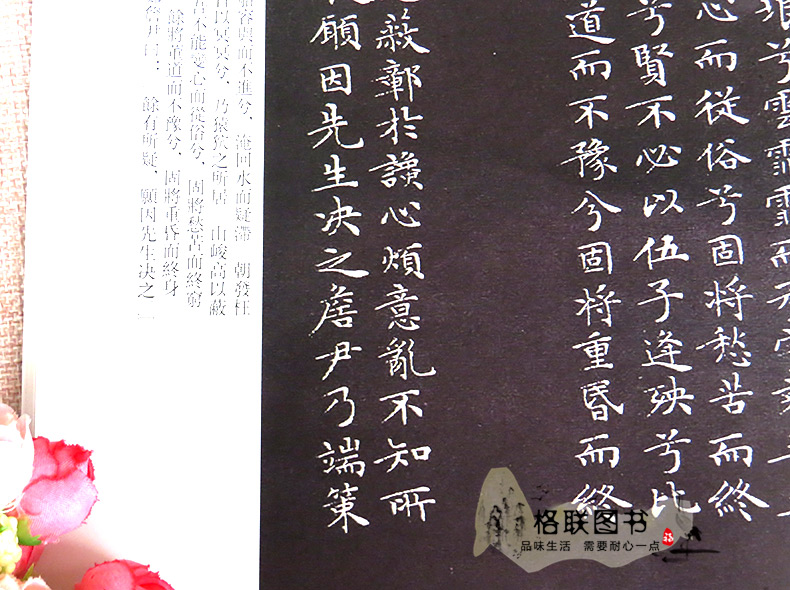 兮雲霏霏而
心而從俗兮固將愁苦而終
兮賢不必以伍子逢殃兮比
道而不豫兮固將重昏而終
鄣於讒心煩意亂不知所
願因先生决之詹尹乃端策
容與而不進兮、淹回水而疑滯 朝發枉
以冥冥兮、乃猿狖之所居 山峻高以蔽
吾不能變心而從俗兮、固將愁苦而終窮
餘將董道而不豫兮、固將重昏而終身
尹曰： 餘有所疑、願因先生决之
格联图书
品味生活 需要耐心一点